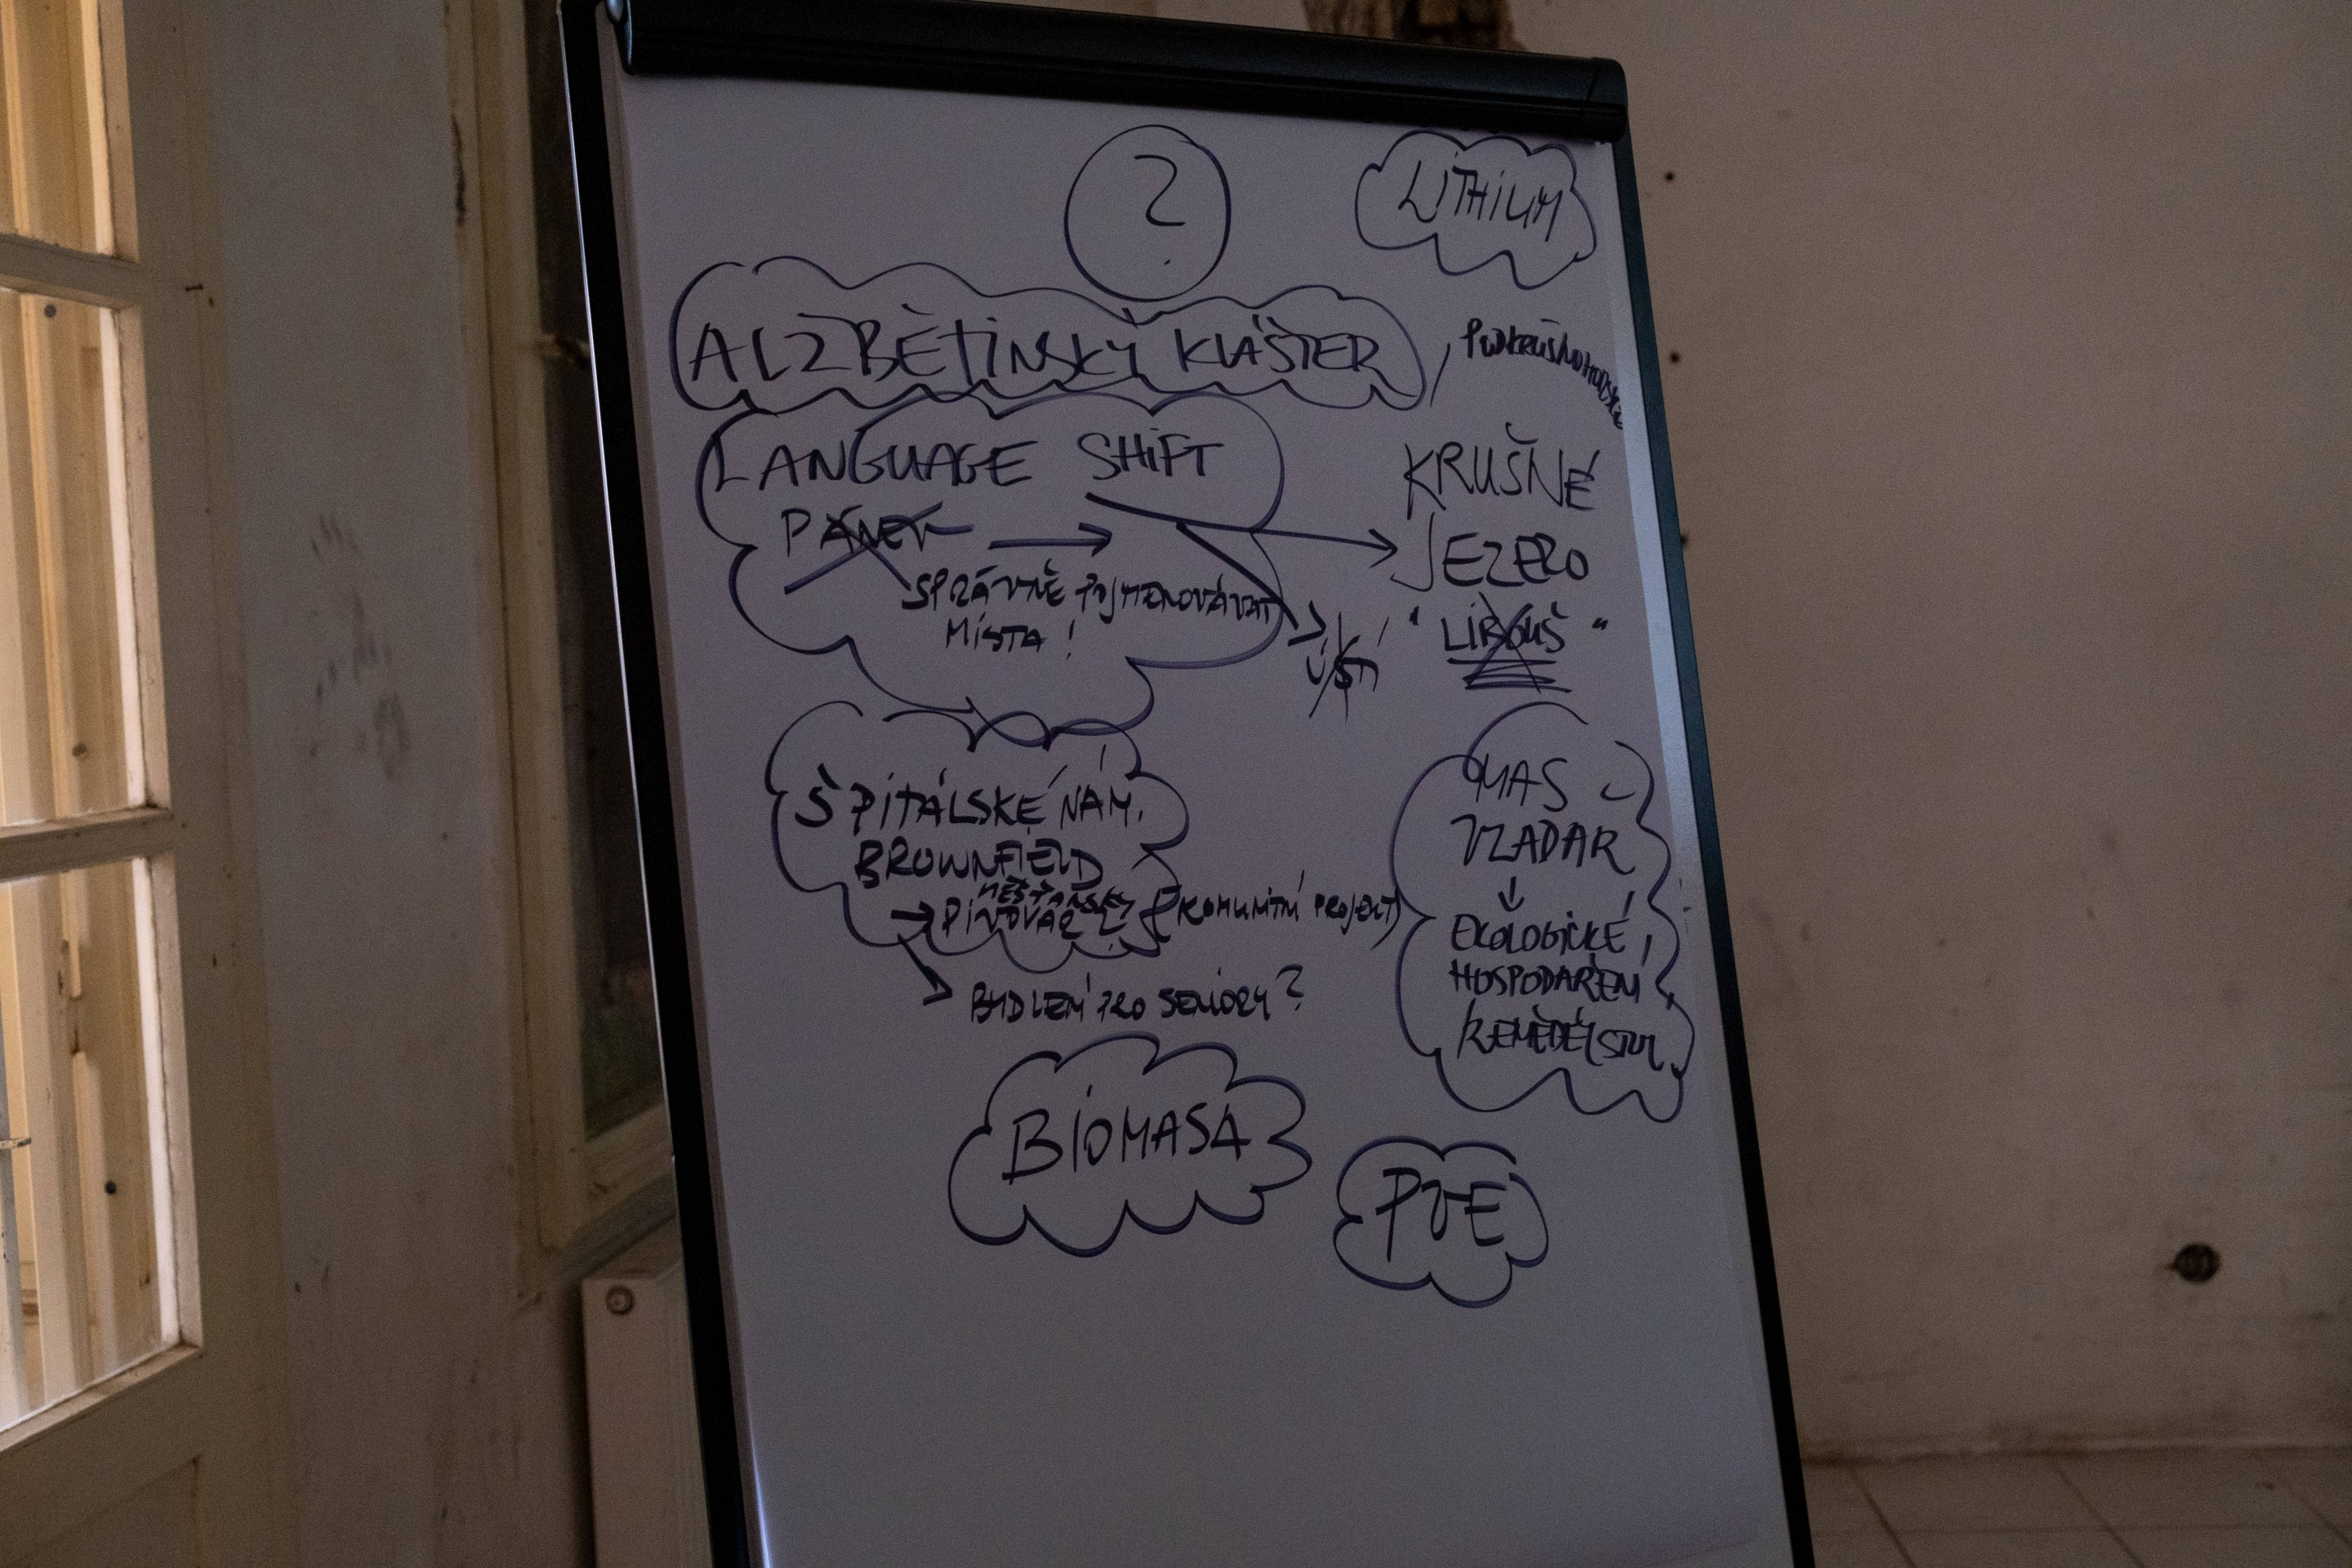 2
LITHIUM
ALZBĚTINSKÝ KLÁŠTER /
LANGUAGE SHIFT
PÁNEV
SPRÁVNĚ POJMENOVÁVAT
MÍSTA !
KRUŠNÉ
JEZERO
"LIBOUŠ"
ÚSTÍ
ŠPITÁLSKÉ NÁM.
BROWNFIELD
MĚŠŤANSKÝ
PIVOVAR
(KOMUNITNÍ PROJEKT)
BYDLENÍ PRO SENIORY?
MAS
VLADAR
EKOLOGICKÉ
HOSPODAŘENÍ
/ZEMĚDĚLSTVÍ
BIOMASA
PVE